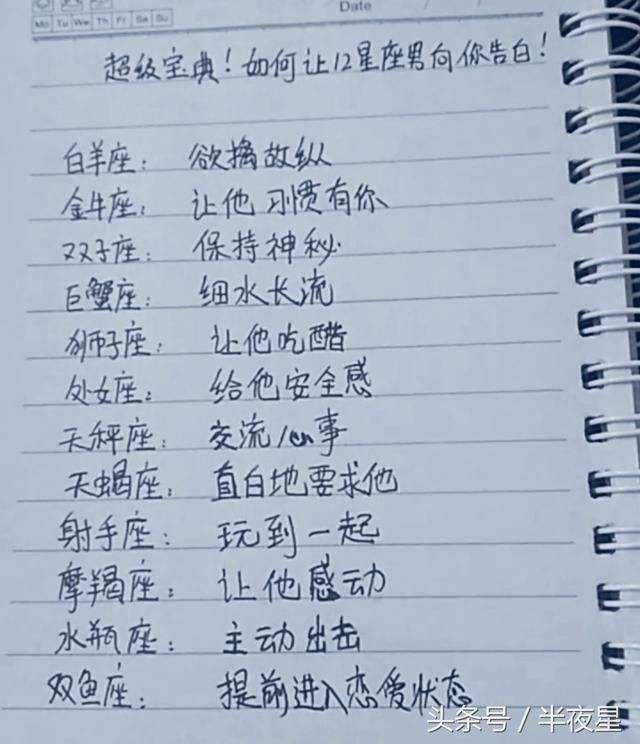 Date
Mo Tu We Th Fr Sa Su
超级宝典！如何让12星座男向你告白！
白羊座： 欲擒故纵
金牛座： 让他习惯有你
双子座： 保持神秘
巨蟹座： 细水长流
狮子座： 让他吃醋
处女座： 给他安全感
天秤座： 交流心事
天蝎座： 直白地要求他
射手座： 玩到一起
摩羯座： 让他感动
水瓶座： 主动出击
双鱼座： 提前进入恋爱状态
头条号 / 半夜星